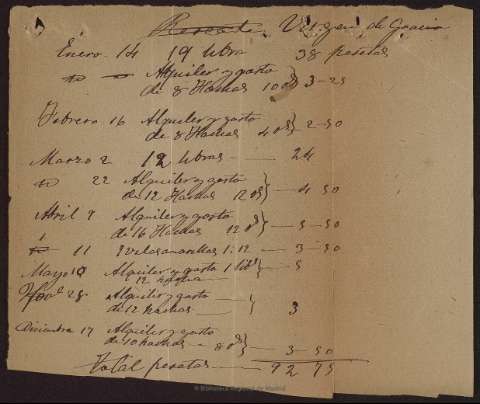 Rescate. Virgen de Gracia
Enero 14 19 libras 38 pesetas
Alquiler y gasto
de 8 Hachas 10 03 } 3-25
Febrero 16 Alquiler y gasto
de 8 Hachas 4 03 } 2-50
Marzo 2 12 libras — 24
22 Alquiler y gasto
de 12 Hachas 12 03 } 4 50
Abril 7 Alquiler y gasto
de 16 Hachas 12 } 5-50
11 velas amarillas 1:12 — 3-50
Mayo 19 Alquiler y gasto 1 } — 5
12 hachas
28 Alquiler y gasto
de 12 hachas } 3
Diciembre 17 Alquiler y gasto
de 10 hachas 8 03 } 3-50
Total pesetas — 92 75
© Biblioteca Regional de Madrid